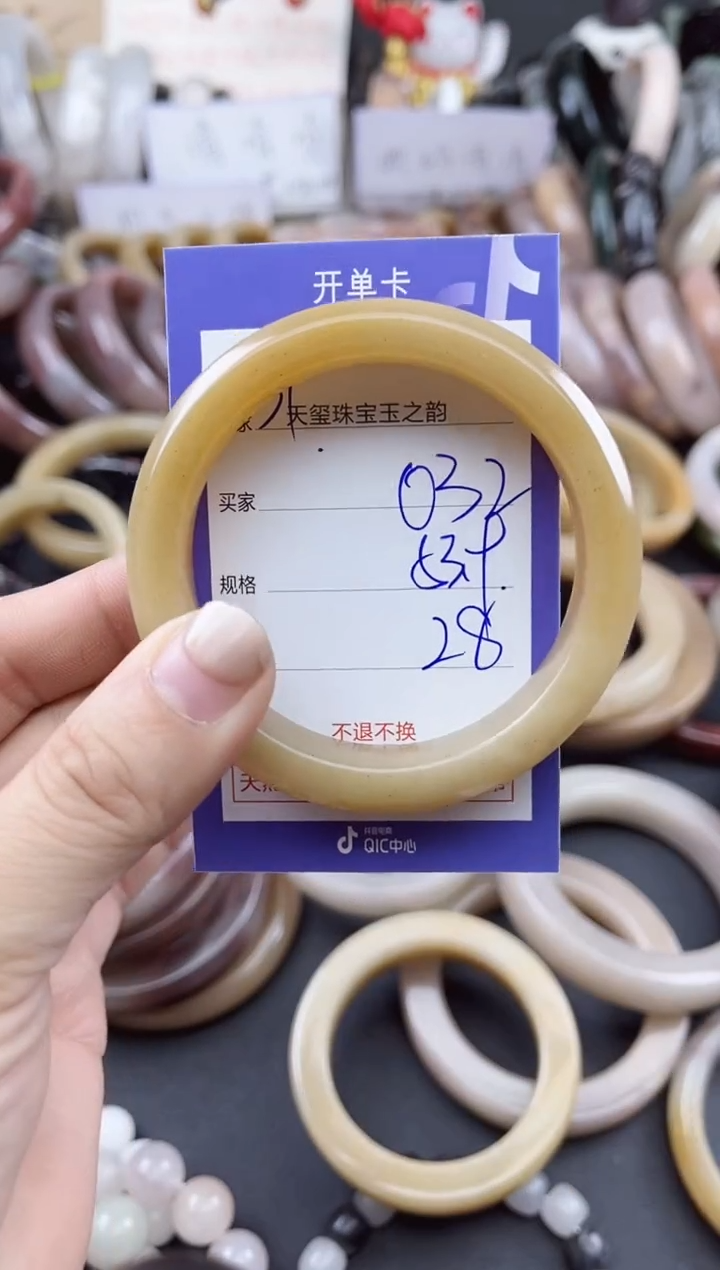 开单卡
天玺珠宝玉之韵
买家 032
规格
28
不退不换
抖音电商
QIC中心